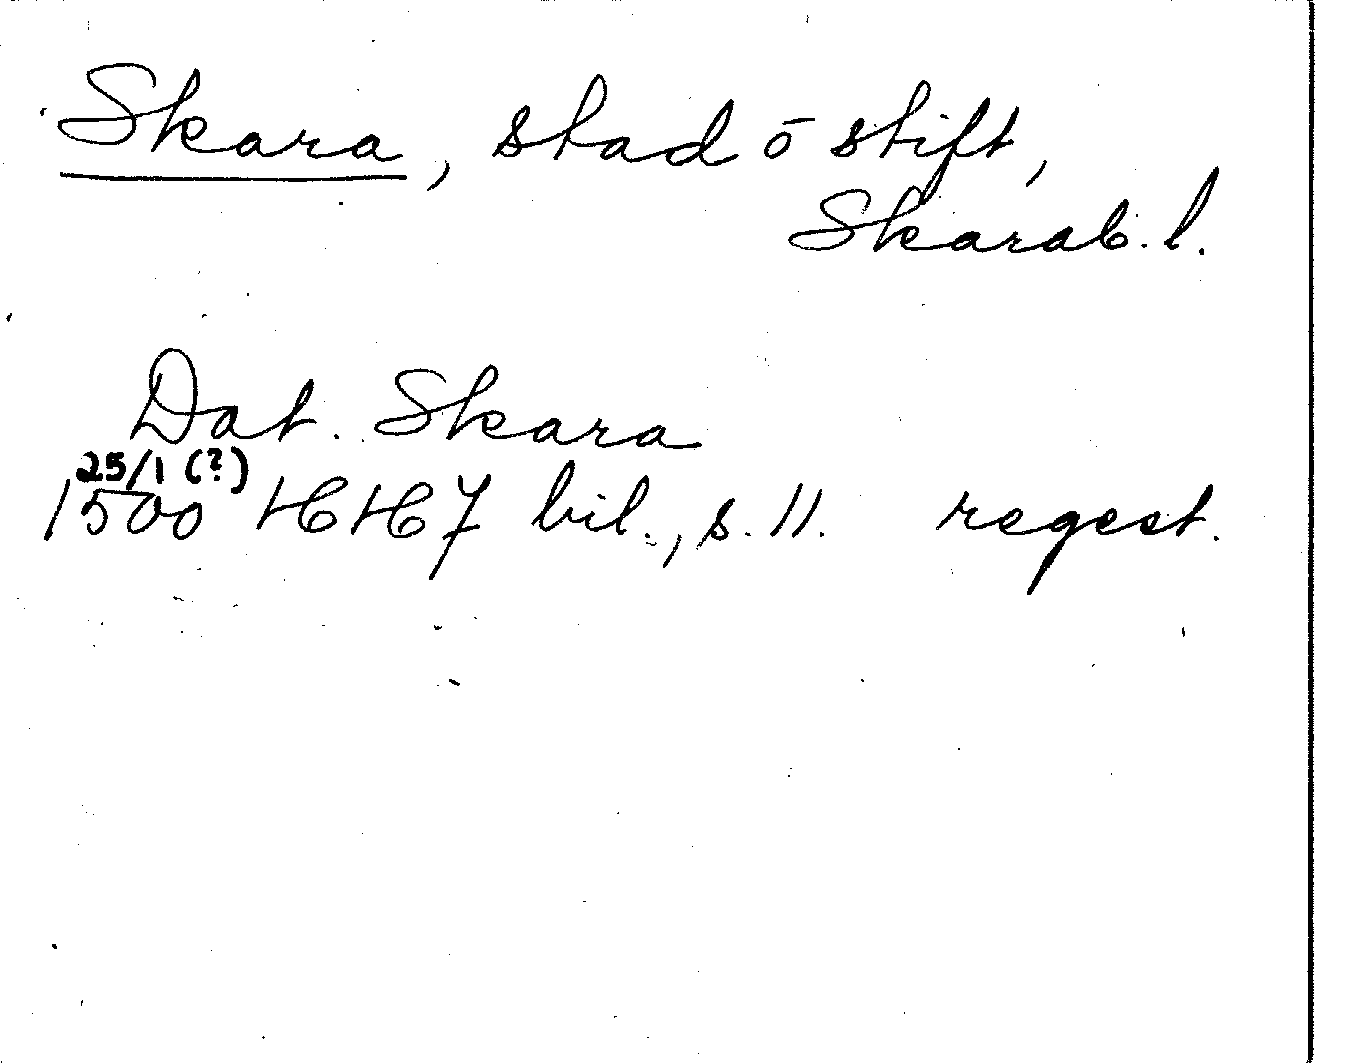 Skara, stad o stift,
Skarab. l.
Dat. Skara
25/1 (?)
1500 HH 7 bil., s. 11. regest.